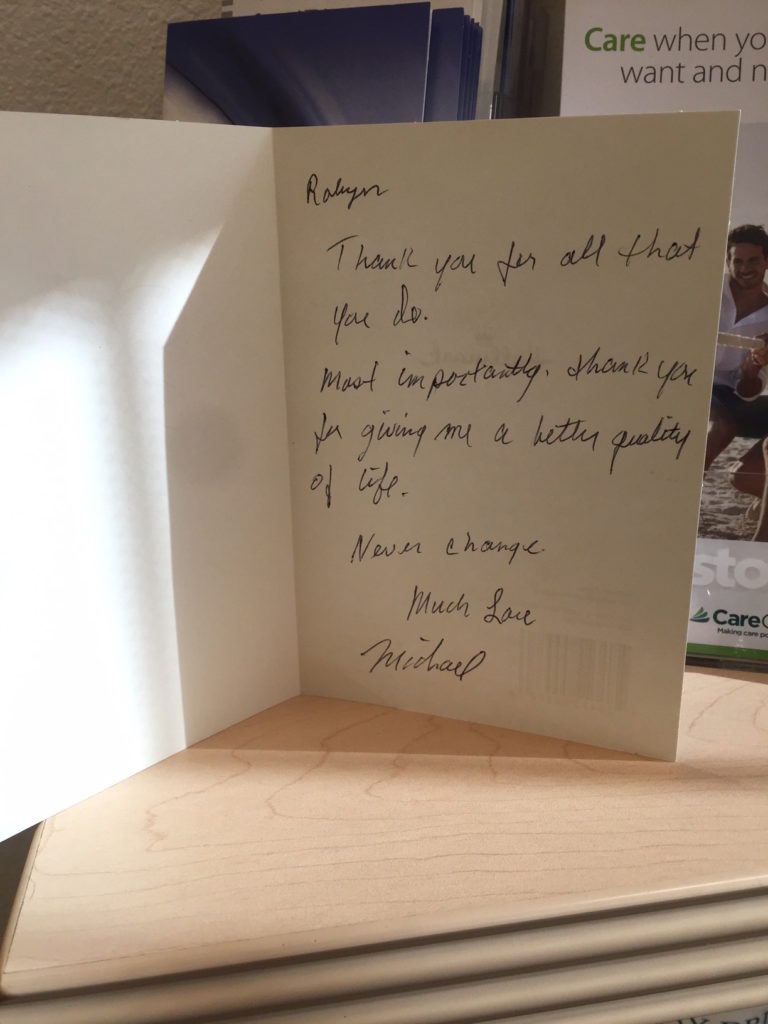 Care when yo
want and n
Robyn
Thank you for all that
you do.
Most importantly. thank you
for giving me a better quality
of life.
Never change.
Much Love
Michael
sto
CareC
Making care po